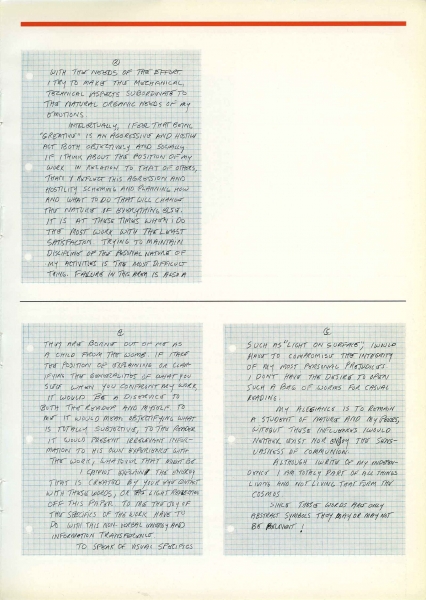 ④
WITH THE NEEDS OF THE EFFORT.
I TRY TO MAKE THE MECHANICAL,
TECHNICAL ASPECTS SUBORDINATE TO
THE NATURAL ORGANIC NEEDS OF MY
EMOTIONS.
INTELLECTUALLY, I FEEL THAT BEING
"CREATIVE" IS AN AGGRESSIVE AND HOSTILE
ACT BOTH OBJECTIVELY AND SOCIALLY
IF I THINK ABOUT THE POSITION OF MY
WORK IN RELATION TO THAT OF OTHERS,
THEN I REFLECT THIS AGGRESSION AND
HOSTILITY SCHEMING AND PLANNING HOW
AND WHAT TO DO THAT WILL CHANGE
THE NATURE OF EVERYTHING ELSE.
IT IS AT THESE TIMES WHEN I DO
THE MOST WORK WITH THE LEAST
SATISFACTION. TRYING TO MAINTAIN
DISCIPLINE OF THE PERSONAL NATURE OF
MY ACTIVITIES IS THE MOST DIFFICULT
THING. FAILURE IN THIS AREA IS ALSO A
THEY ARE BORNE OUT OF ME AS
A CHILD FROM THE WOMB. IF I TAKE
THE POSITION OF EXPLAINING OR CLAR-
IFYING THE GENERALITIES OF WHAT YOU
SEE WHEN YOU CONFRONT MY WORK,
IT WOULD BE A DISERVICE TO
BOTH THE READER AND MYSELF. TO
ME IT WOULD MEAN OBJECTIFYING WHAT
IS TOTALLY SUBJECTIVE, TO THE READER
IT WOULD PRESENT IRRELEVANT INFOR-
MATION TO HIS OWN EXPERIENCE WITH
THE WORK, WHATEVER THAT MIGHT BE.
I CANNOT EXPLAIN THE ENERGY
THAT IS CREATED BY YOUR EYE CONTACT
WITH THESE WORDS, OR THE LIGHT REFLECTING
OFF THIS PAPER TO THE EYE OF
THE SPECIFICS OF THE WORK HAVE TO
DO WITH THIS NON-VERBAL ENERGY AND
INFORMATION TRANSFERENCE.
TO SPEAK OF VISUAL SPECIFICS
SUCH AS "LIGHT ON SURFACE", I WOULD
HAVE TO COMPROMISE THE INTEGRITY
OF MY MOST PERSONAL PREJUDICES
I DON'T HAVE THE DESIRE TO OPEN
SUCH A BAG OF WORMS FOR CASUAL
READING.
MY ALLEGIANCE IS TO REMAIN
A STUDENT OF NATURE AND MY PEERS,
WITHOUT THESE INFLUENCES I WOULD
NEITHER EXIST NOR ENJOY THE SENS-
UOUSNESS OF COMMUNION.
ALTHOUGH I WRITE OF MY INDEPEN-
DENCE I AM TOTALLY PART OF ALL THINGS
LIVING AND NOT LIVING THAT FORM THE
COSMOS
SINCE THESE WORDS ARE ONLY
ABSTRACT SYMBOLS THEY MAY OR MAY NOT
BE RELEVENT!